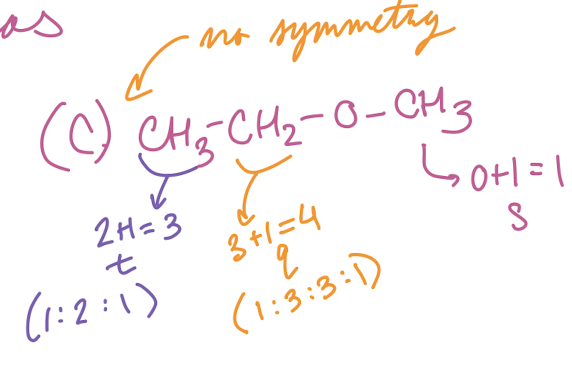 as
no symmetry
(C) CH3-CH2-O-CH3
0+1=1
s
2H=3
t
(1:2:1)
3+1=4
q
(1:3:3:1)